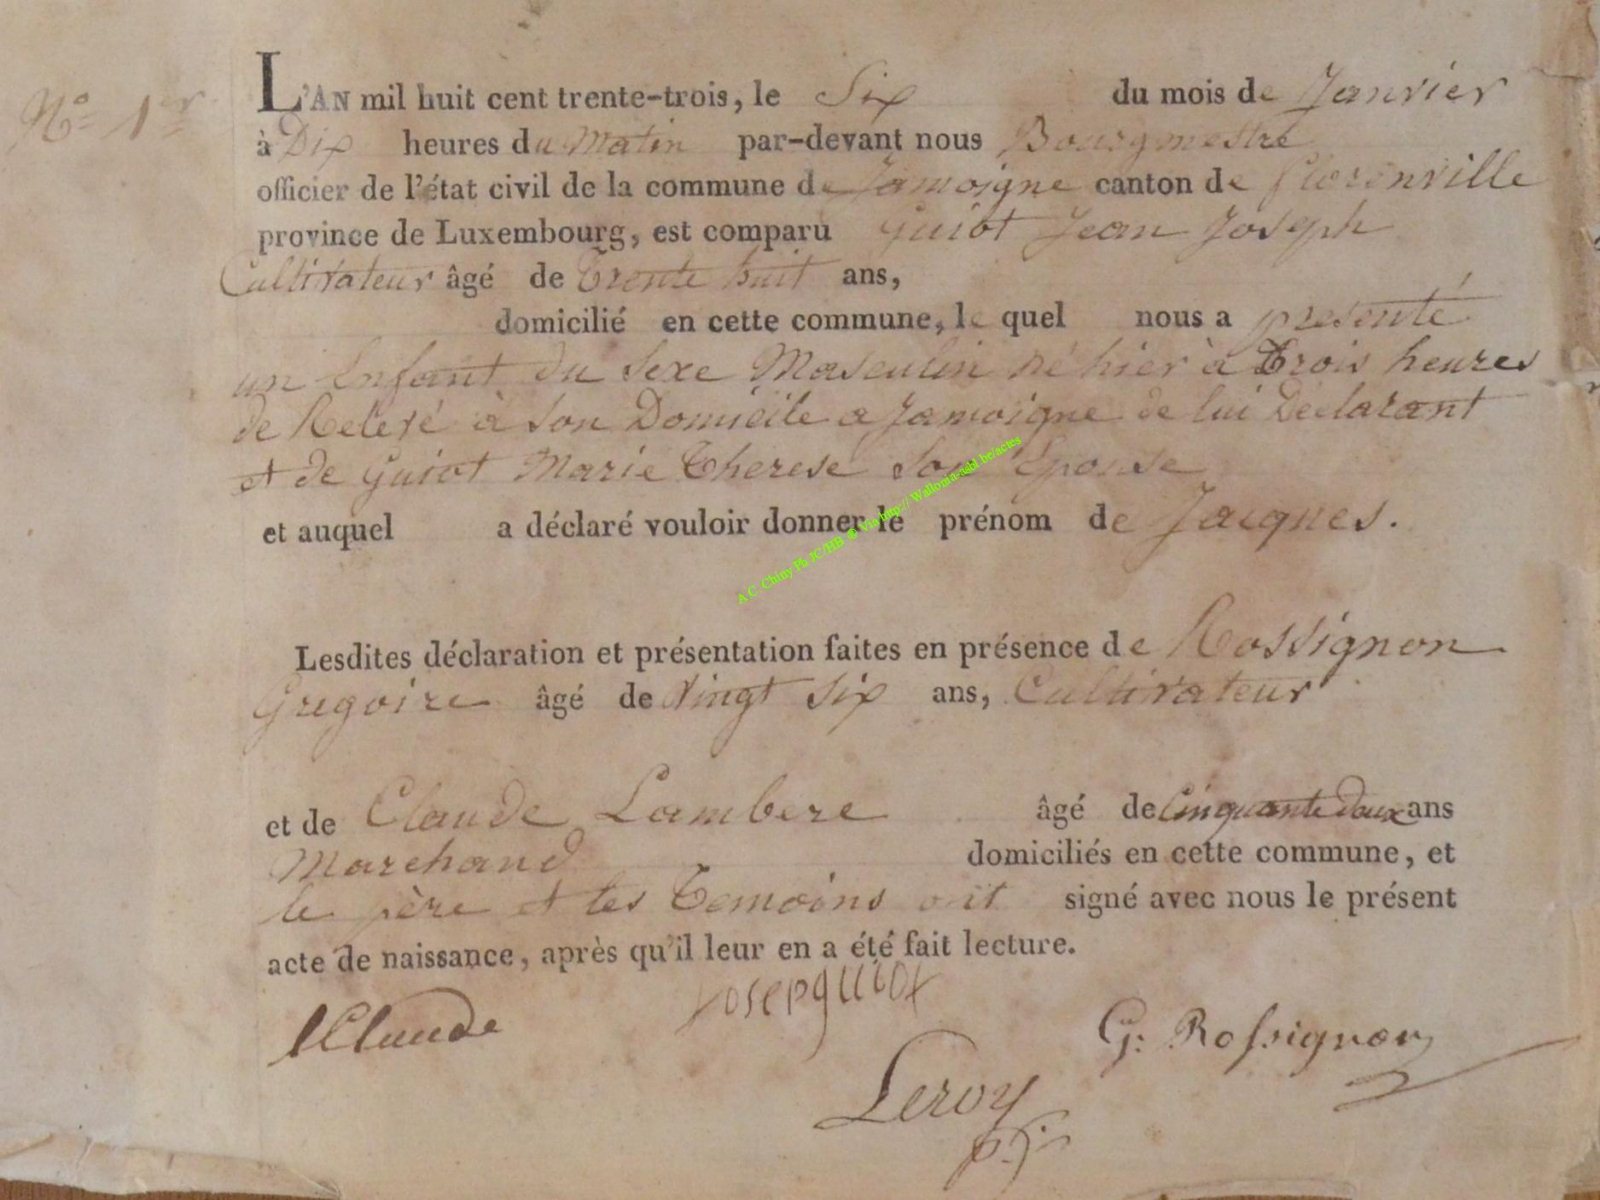 N.° 1er
L'AN mil huit cent trente-trois, le Six du mois de Janvier
à Dix heures du Matin par-devant nous Bourgmestre
officier de l'état civil de la commune de Jamoigne canton de florenville
province de Luxembourg, est comparu Guiot Jean Joseph
Cultivateur âgé de Trente huit ans,
domicilié en cette commune, le quel nous a presenté
un Enfant du Sexe Masculin né hier à Trois heures
de Relevé à Son Domicile a Jamoigne de lui Déclarant
et de Guiot Marie Therese Son Epouse
et auquel a déclaré vouloir donner le prénom de Jacques.
A.C. Chiny Ph JC/HB © Via http:// Wallonia-asbl.be/actes
Lesdites déclaration et présentation faites en présence de Rossignon
Gregoire âgé de Vingt Six ans, Cultivateur
et de Claude Lambere âgé de Cinquante deux ans
Marchand domiciliés en cette commune, et
le père et les Temoins ont signé avec nous le présent
acte de naissance, après qu'il leur en a été fait lecture.
Claude
Josepguiot
G: Rossignon
Leroy